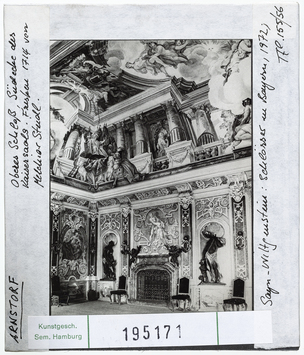 ARNSTORF
Oberes Schloß, Südecke des
Kaisersaals. Fresken 1714 von
Melchior Steidl.
Sayn-Wittgenstein: Schlösser in Bayern, 1972,
Kunstgesch.
Sem. Hamburg
195171